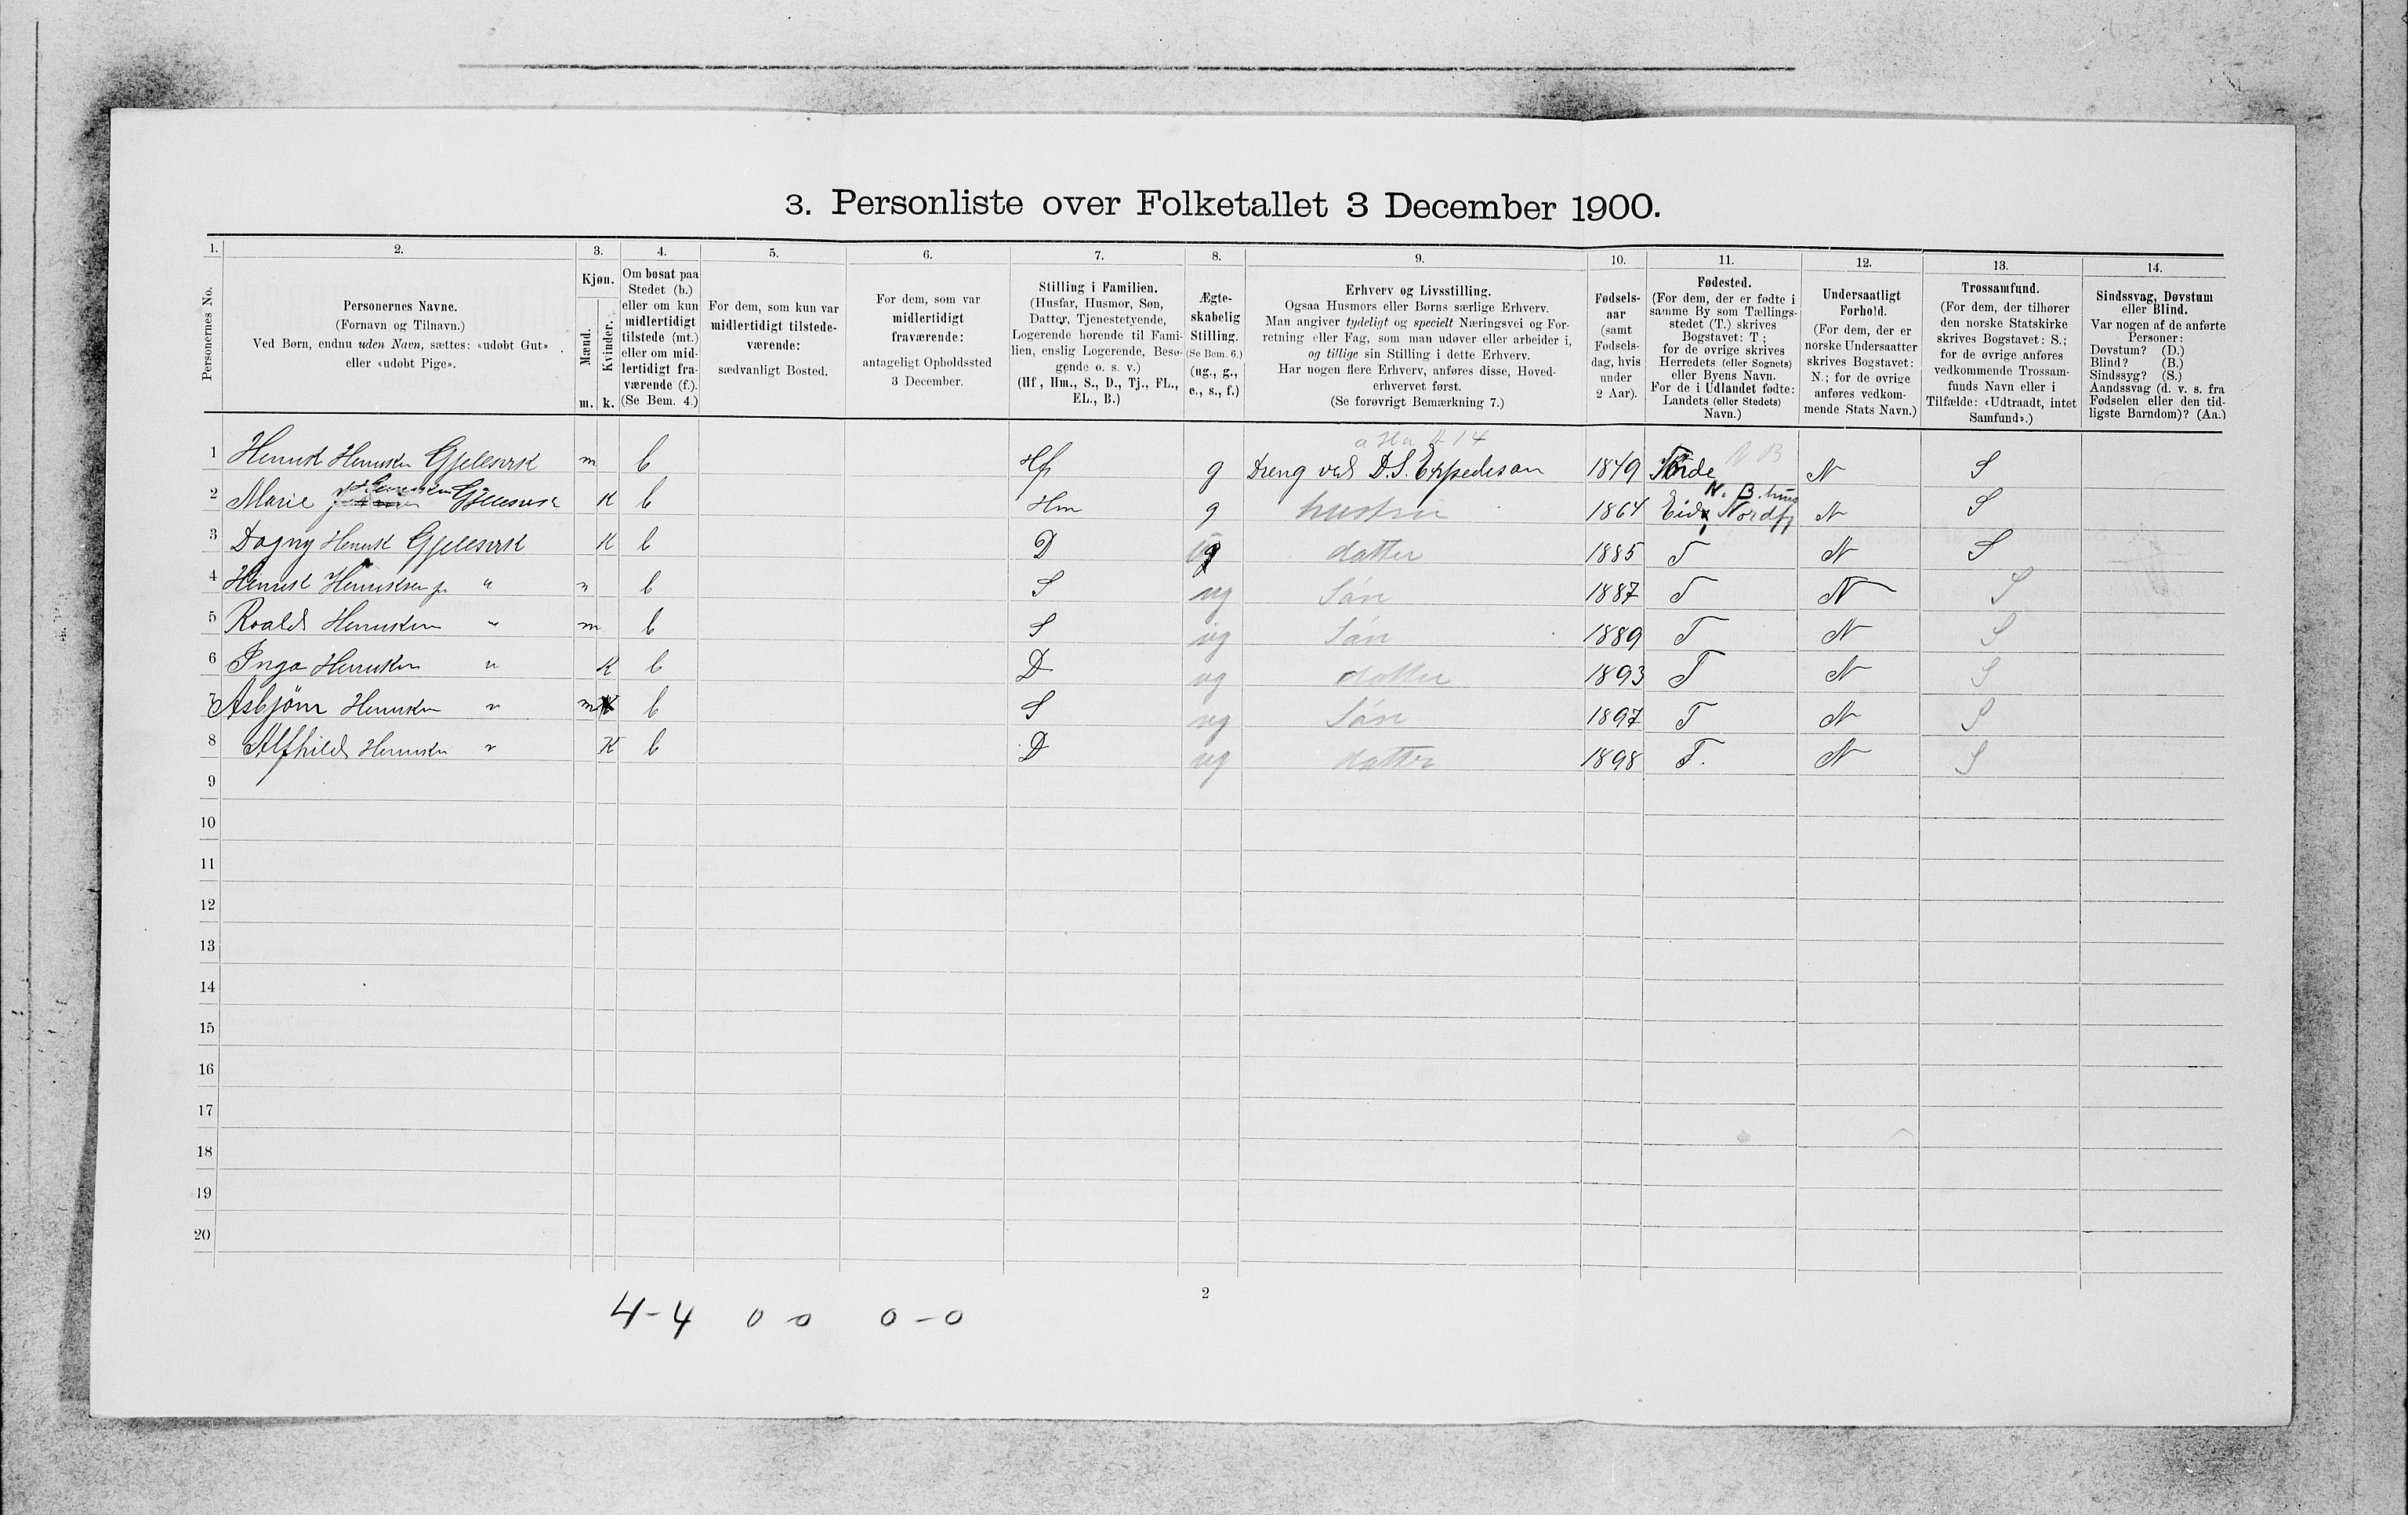 3. Personliste over Folketallet 3 December 1900.
1. 2. 3. 4. 5. 6. 7. 8. 9. 10. 11. 12. 13. 14.
Personernes No.
Personernes Navne.
(Fornavn og Tilnavn.)
Ved Børn, endnu uden Navn, sættes: «udøbt Gut»
eller «udøbt Pige».
Kjøn.
Mænd.
Kvinder.
m. k.
Om bosat paa
Stedet (b.)
eller om kun
midlertidigt
tilstede (mt.)
eller om mid-
lertidigt fra-
værende (f.).
(Se Bem. 4.)
For dem, som kun var
midlertidigt tilstede-
værende:
sædvanligt Bosted.
For dem, som var
midlertidigt
fraværende:
antageligt Opholdssted
3 December.
Stilling i Familien.
(Husfar, Husmor, Søn,
Datter, Tjenestetyende,
Logerende hørende til Fami-
lien, enslig Logerende, Besø-
gende o. s. v.)
(Hf, Hm., S., D., Tj., FL.,
EL., B.)
Ægte-
skabelig
Stilling.
(Se Bem. 6.)
(ug., g.,
e., s., f.)
Erhverv og Livsstilling.
Ogsaa Husmors eller Børns særlige Erhverv.
Man angiver tydeligt og specielt Næringsvei og For-
retning eller Fag, som man udøver eller arbeider i,
og tillige sin Stilling i dette Erhverv.
Har nogen flere Erhverv, anføres disse, Hoved-
erhvervet først.
(Se forøvrigt Bemærkning 7.)
Fødsels-
aar
(samt
Fødsels-
dag, hvis
under
2 Aar).
Fødested.
(For dem, der er fødte i
samme By som Tællings-
stedet (T.) skrives
Bogstavet: T;
for de øvrige skrives
Herredets (eller Sognets)
eller Byens Navn.
For de i Udlandet fødte:
Landets (eller Stedets)
Navn.)
Undersaatligt
Forhold.
(For dem, der er
norske Undersaatter
skrives Bogstavet:
N.; for de øvrige
anføres vedkom-
mende Stats Navn.)
Trossamfund.
(For dem, der tilhører
den norske Statskirke
skrives Bogstavet: S.;
for de øvrige anføres
vedkommende Trossam-
funds Navn eller i
Tilfælde: «Udtraadt, intet
Samfund».)
Sindssvag, Døvstum
eller Blind.
Var nogen af de anførte
Personer:
Døvstum? (D.)
Blind? (B.)
Sindssyg? (S.)
Aandssvag (d. v. s. fra
Fødselen eller den tid-
ligste Barndom)? (Aa.)
N B
1 Henrik Henriksen Gjelesvik m b Hf g Dreng ved D.S. Expedision 1849 Förde N S
N. B. hus
2 Marie Gjelesvik K b Hm g hustru 1864 Eid Nordfj N S
3 Dagny Henrik Gjelesvik K b D g datter 1885 T N S
4 Henrik Henriksen jr. " m b S ug Sön 1887 T N S
5 Roald Henriksen " m b S ug Sön 1889 T N S
6 Inga Henriksen " K b D ug datter 1893 T N S
7 Asbjörn Henriksen " m b S ug Sön 1897 T N S
8 Alfhild Henriksen " K b D ug datter 1898 T. N S
9
10
11
12
13
14
15
16
17
18
19
20
2
4-4 0 0 0-0